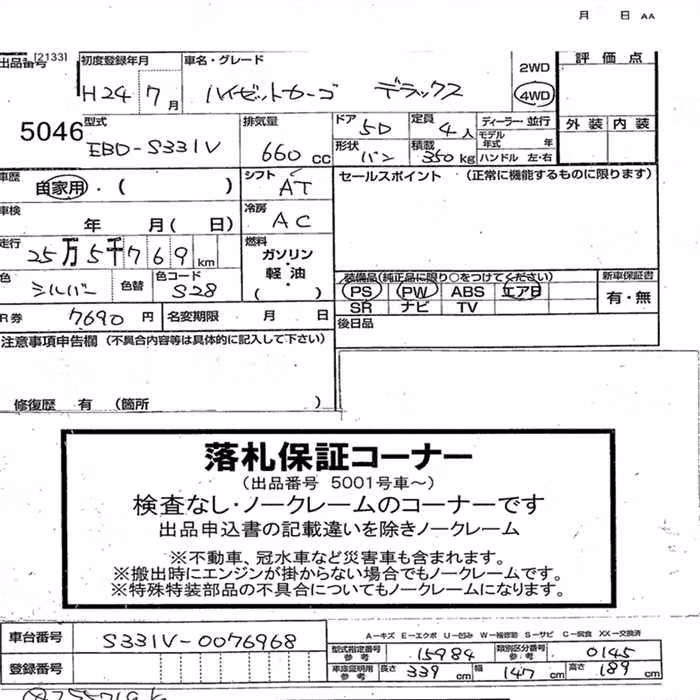 月 日 AA
出品番号 [2133] 初度登録年月 車名・グレード 2WD 評価点
H24 7月 ハイゼットカーゴ デラックス 4WD
5046 型式 排気量 ドア 5D 定員 4人 ディーラー・並行 外装 内装
EBD-S331V 660cc 形状 バン 積載 350kg モデル年式 年 ハンドル 左・右
車歴 自家用・( ) シフト AT セールスポイント (正常に機能するものに限ります)
車検 年 月( 日) 冷房 AC
走行 25万5千769km 燃料 ガソリン・軽油・( )
色 シルバー 色替 色コード S28 装備品(純正品に限り○をつけてください) 新車保証書
PS PW ABS エアB 有・無
SR ナビ TV
R券 7690円 名変期限 月 日 後日品
注意事項申告欄 (不具合内容等は具体的に記入して下さい)
修復歴 有 (箇所 )
落札保証コーナー
(出品番号 5001号車~)
検査なし・ノークレームのコーナーです
出品申込書の記載違いを除きノークレーム
※不動車、冠水車など災害車も含まれます。
※搬出時にエンジンが掛からない場合でもノークレームです。
※特殊特装部品の不具合についてもノークレームになります。
A-キズ E-エクボ U-凹み W-補修跡 S-サビ C-腐食 XX-交換済
車台番号 S331V-0076968 型式指定番号 参考 15984 類別区分番号 参考 0145
登録番号 車庫証明用 参考 長さ 339cm 幅 147cm 高さ 189cm